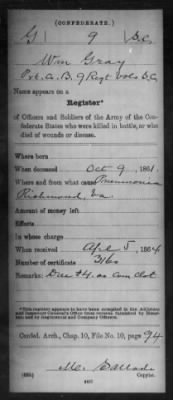 (CONFEDERATE.)
G 9 S.C.
Wm Gray
Pvt. Co. B. 9 Regt Vols S.C.
Name appears on a
Register*
of Officers and Soldiers of the Army of the Confederate States who were killed in battle, or who
died of wounds or disease.
Where born
When deceased Oct 9, 1861.
Where and from what cause Pneumonia
Richmond, Va.
Amount of money left
Effects
In whose charge
When received Apl 5, 1864
Number of certificate 3160
Remarks: Due $4. as com clot
*This register appears to have been compiled in the Adjutant
and Inspector General's Office from records furnished by Hospitals
and by Regimental and Company Officers.
Confed. Arch., Chap. 10, File No. 10, page 94
Copyist.